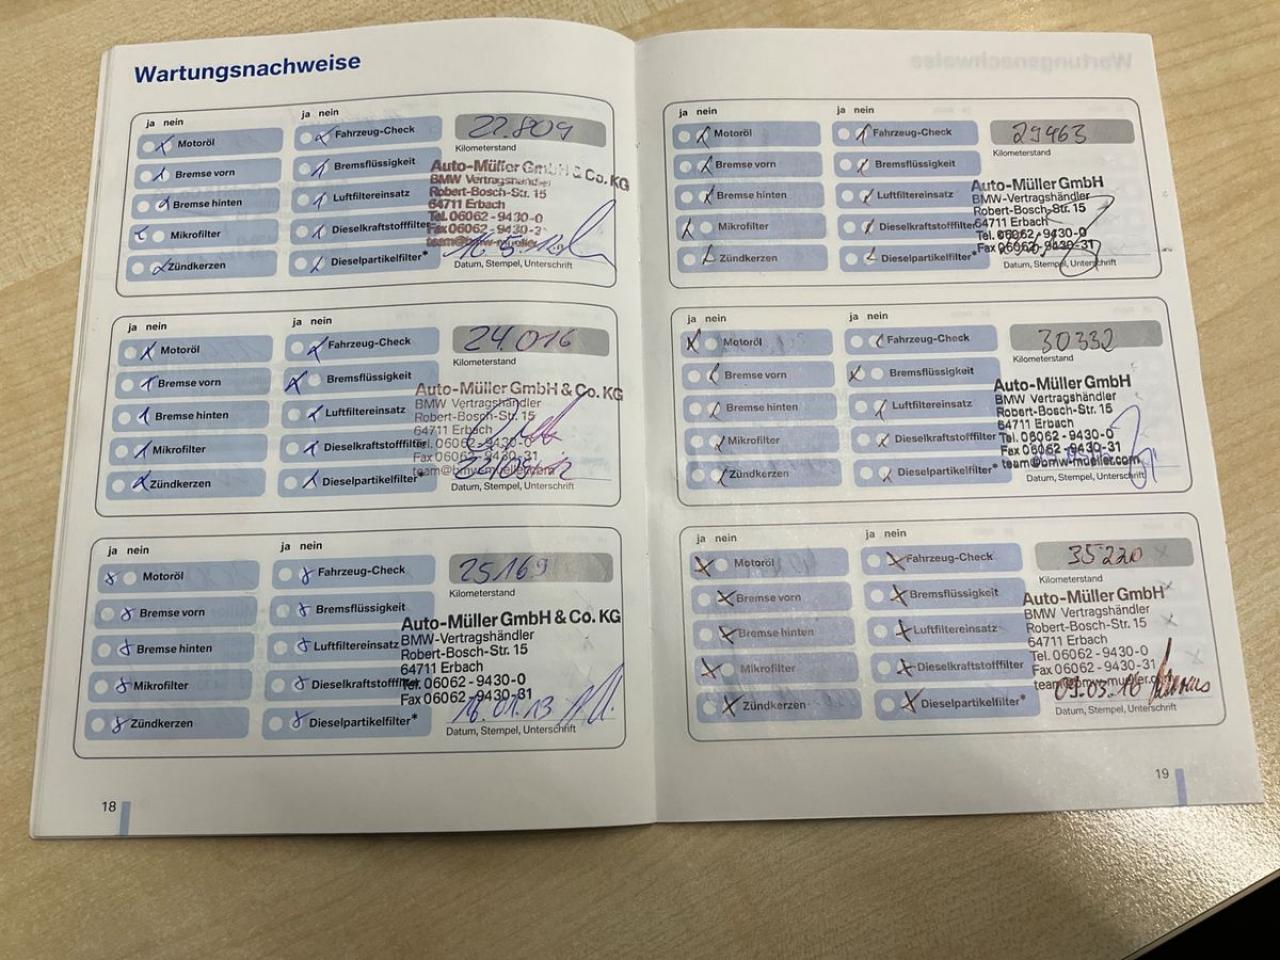 Wartungsnachweise
ja nein
ja nein
Motoröl
Fahrzeug-Check
22.809
Kilometerstand
Bremse vorn
Bremsflüssigkeit
Auto-Müller GmbH & Co. KG
BMW Vertragshändler
Bremse hinten
Luftfiltereinsatz
Robert-Bosch-Str. 15
64711 Erbach
Mikrofilter
Dieselkraftstofffilter
Tel. 06062-9430-0
Fax 06062-9430-3
Zündkerzen
Dieselpartikelfilter*
Datum, Stempel, Unterschrift
ja nein
ja nein
Motoröl
Fahrzeug-Check
24.016
Kilometerstand
Bremse vorn
Bremsflüssigkeit
Auto-Müller GmbH & Co. KG
BMW Vertragshändler
Bremse hinten
Luftfiltereinsatz
Robert-Bosch-Str. 15
64711 Erbach
Mikrofilter
Dieselkraftstofffilter
Tel. 06062-9430-0
Fax 06062-9430-31
team@bmw-mueller.com
Zündkerzen
Dieselpartikelfilter*
Datum, Stempel, Unterschrift
ja nein
ja nein
Motoröl
Fahrzeug-Check
25169
Kilometerstand
Bremse vorn
Bremsflüssigkeit
Auto-Müller GmbH & Co. KG
BMW-Vertragshändler
Bremse hinten
Luftfiltereinsatz
Robert-Bosch-Str. 15
64711 Erbach
Mikrofilter
Dieselkraftstofffilter
Tel. 06062-9430-0
Fax 06062-9430-31
18.01.13
Zündkerzen
Dieselpartikelfilter*
Datum, Stempel, Unterschrift
18
ja nein
ja nein
Motoröl
Fahrzeug-Check
29463
Kilometerstand
Bremse vorn
Bremsflüssigkeit
Auto-Müller GmbH
BMW-Vertragshändler
Bremse hinten
Luftfiltereinsatz
Robert-Bosch-Str. 15
64711 Erbach
Mikrofilter
Dieselkraftstofffilter
Tel. 06062-9430-0
Fax 06062-9430-31
Zündkerzen
Dieselpartikelfilter*
Datum, Stempel, Unterschrift
ja nein
ja nein
Motoröl
Fahrzeug-Check
30332
Kilometerstand
Bremse vorn
Bremsflüssigkeit
Auto-Müller GmbH
BMW Vertragshändler
Bremse hinten
Luftfiltereinsatz
Robert-Bosch-Str. 15
64711 Erbach
Mikrofilter
Dieselkraftstofffilter
Tel. 06062-9430-0
Fax 06062-9430-31
team@bmw-mueller.com
Zündkerzen
Dieselpartikelfilter*
Datum, Stempel, Unterschrift
ja nein
ja nein
Motoröl
Fahrzeug-Check
35220
Kilometerstand
Bremse vorn
Bremsflüssigkeit
Auto-Müller GmbH
BMW Vertragshändler
Bremse hinten
Luftfiltereinsatz
Robert-Bosch-Str. 15
64711 Erbach
Mikrofilter
Dieselkraftstofffilter
Tel. 06062-9430-0
Fax 06062-9430-31
09.03.16
Zündkerzen
Dieselpartikelfilter*
Datum, Stempel, Unterschrift
19